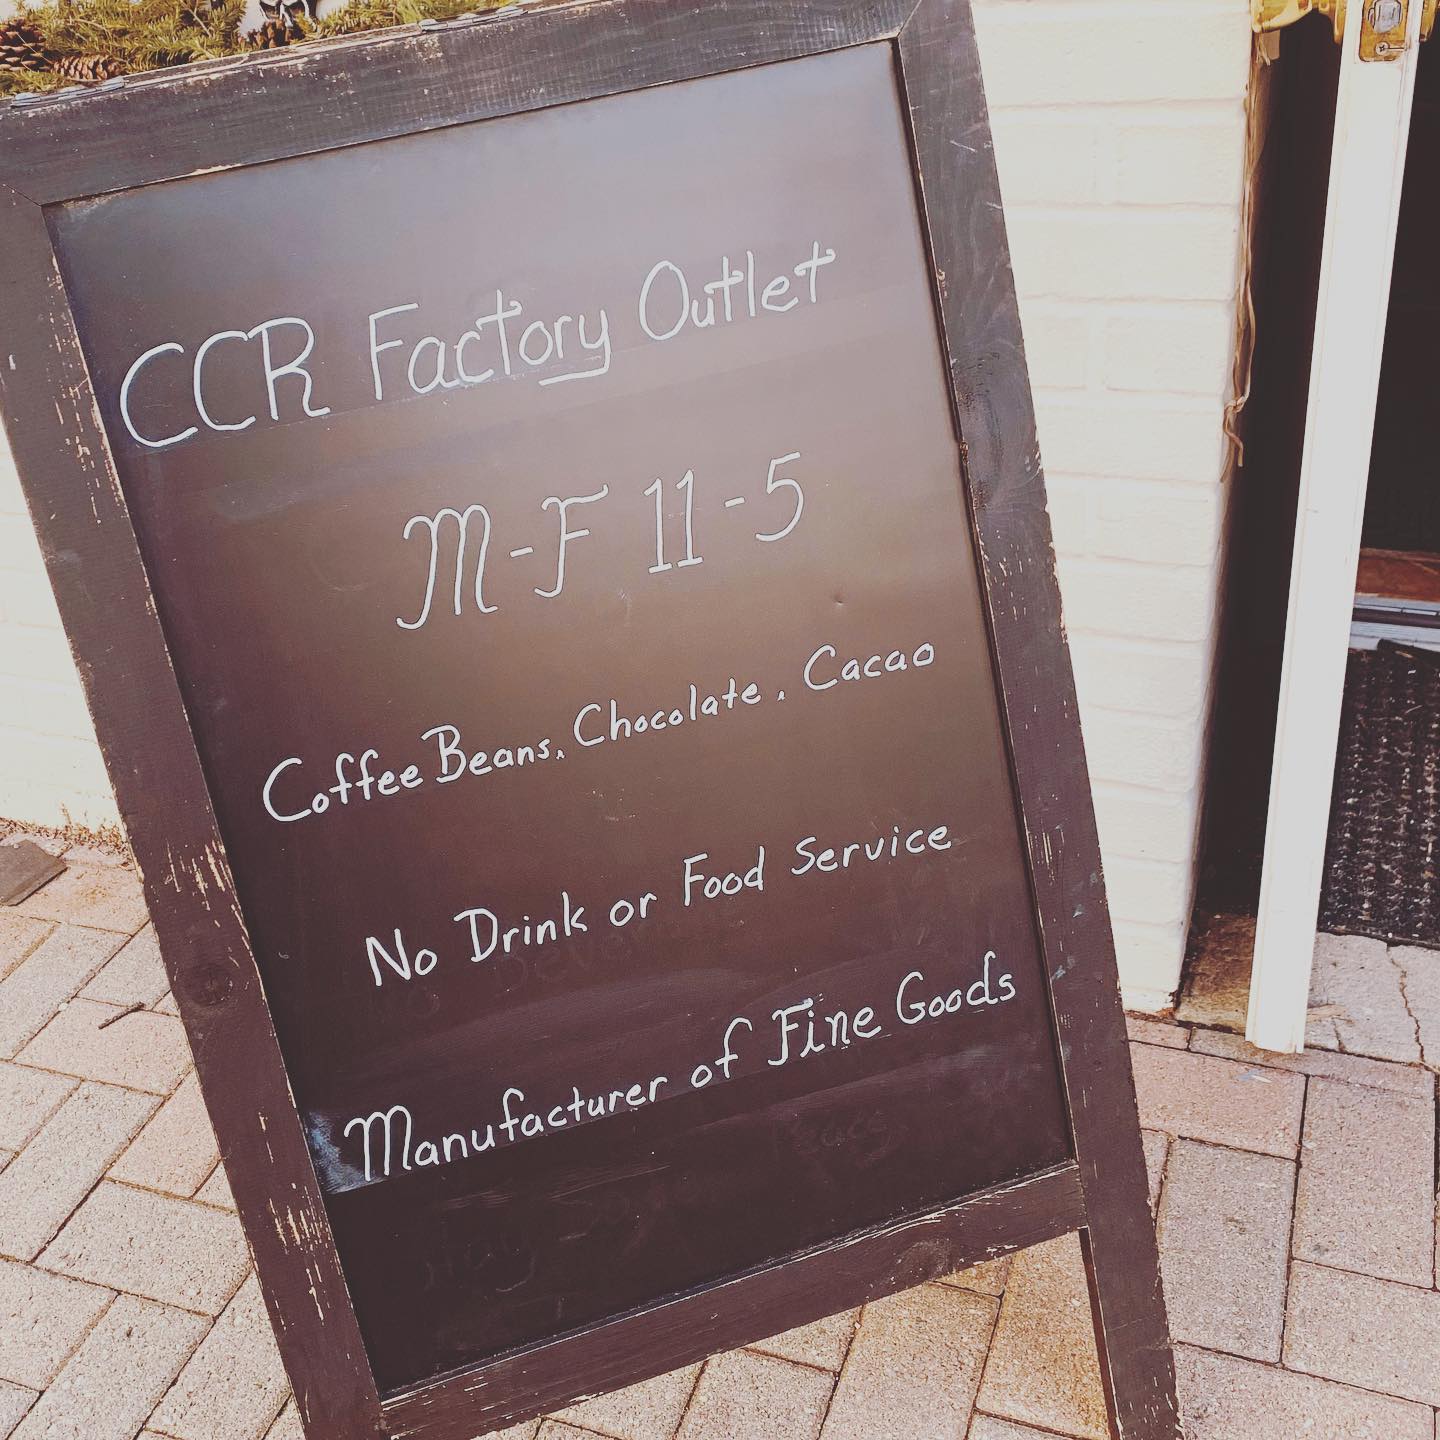 CCR Factory Outlet
M-F 11-5
Coffee Beans, Chocolate, Cacao
No Drink or Food Service
Manufacturer of Fine Goods